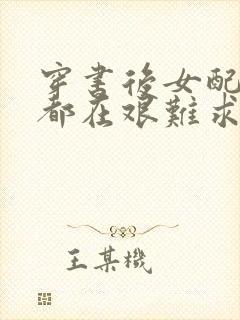 穿書後女配
都在艱難求
王某機